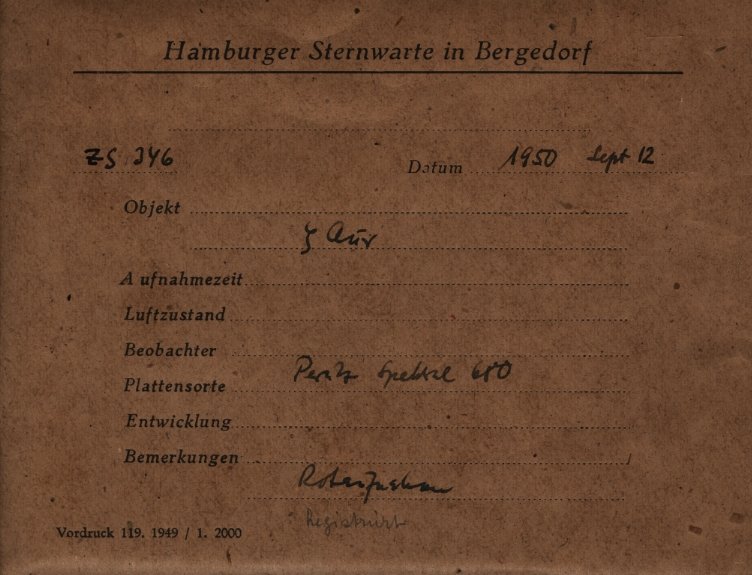 Hamburger Sternwarte in Bergedorf
ZS 346 Datum 1950 Sept 12
Objekt
ζ Aur
Aufnahmezeit
Luftzustand
Beobachter
Plattensorte Perutz Spektral 650
Entwicklung
Bemerkungen
Registriert
Vordruck 119. 1949 / 1. 2000